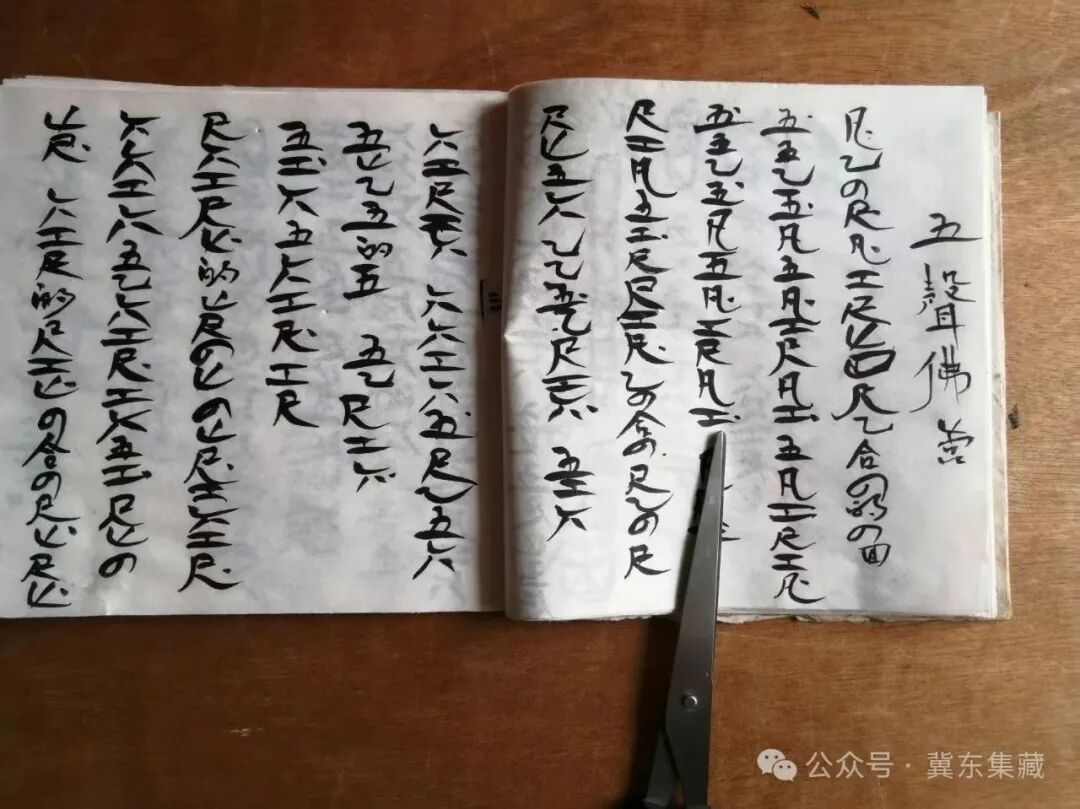 五聲佛
凡乙の尺凡工尺上尺乙合の的の回
五五乙五凡五凡工尺凡工五凡工尺工凡
五五乙五凡五凡工尺凡工
尺工凡五工尺尺工尺乙の合の尺乙の尺
尺上五六乙乙五乙尺工六 五工六
六工尺工六 六六工六五尺乙五六
五上乙五的五 五乙尺工六
五工六五六工尺工尺
尺六工尺上的上尺の上の上尺工六工尺
六六工六五乙六工尺工六五工尺上の
上尺 六工尺的尺工上の合の尺上尺上
公众号 · 冀东集藏